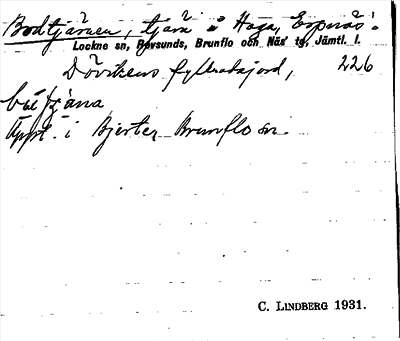 Bodtjärnen, tjärn i Haga, Espnäs.
Lockne sn, Revsunds, Brunflo och Näs' tg, Jämtl. l.
Dövikens fyllnadsjord, 226
Uppt. i Bjerter, Brunflo sn.
C. LINDBERG 1931.